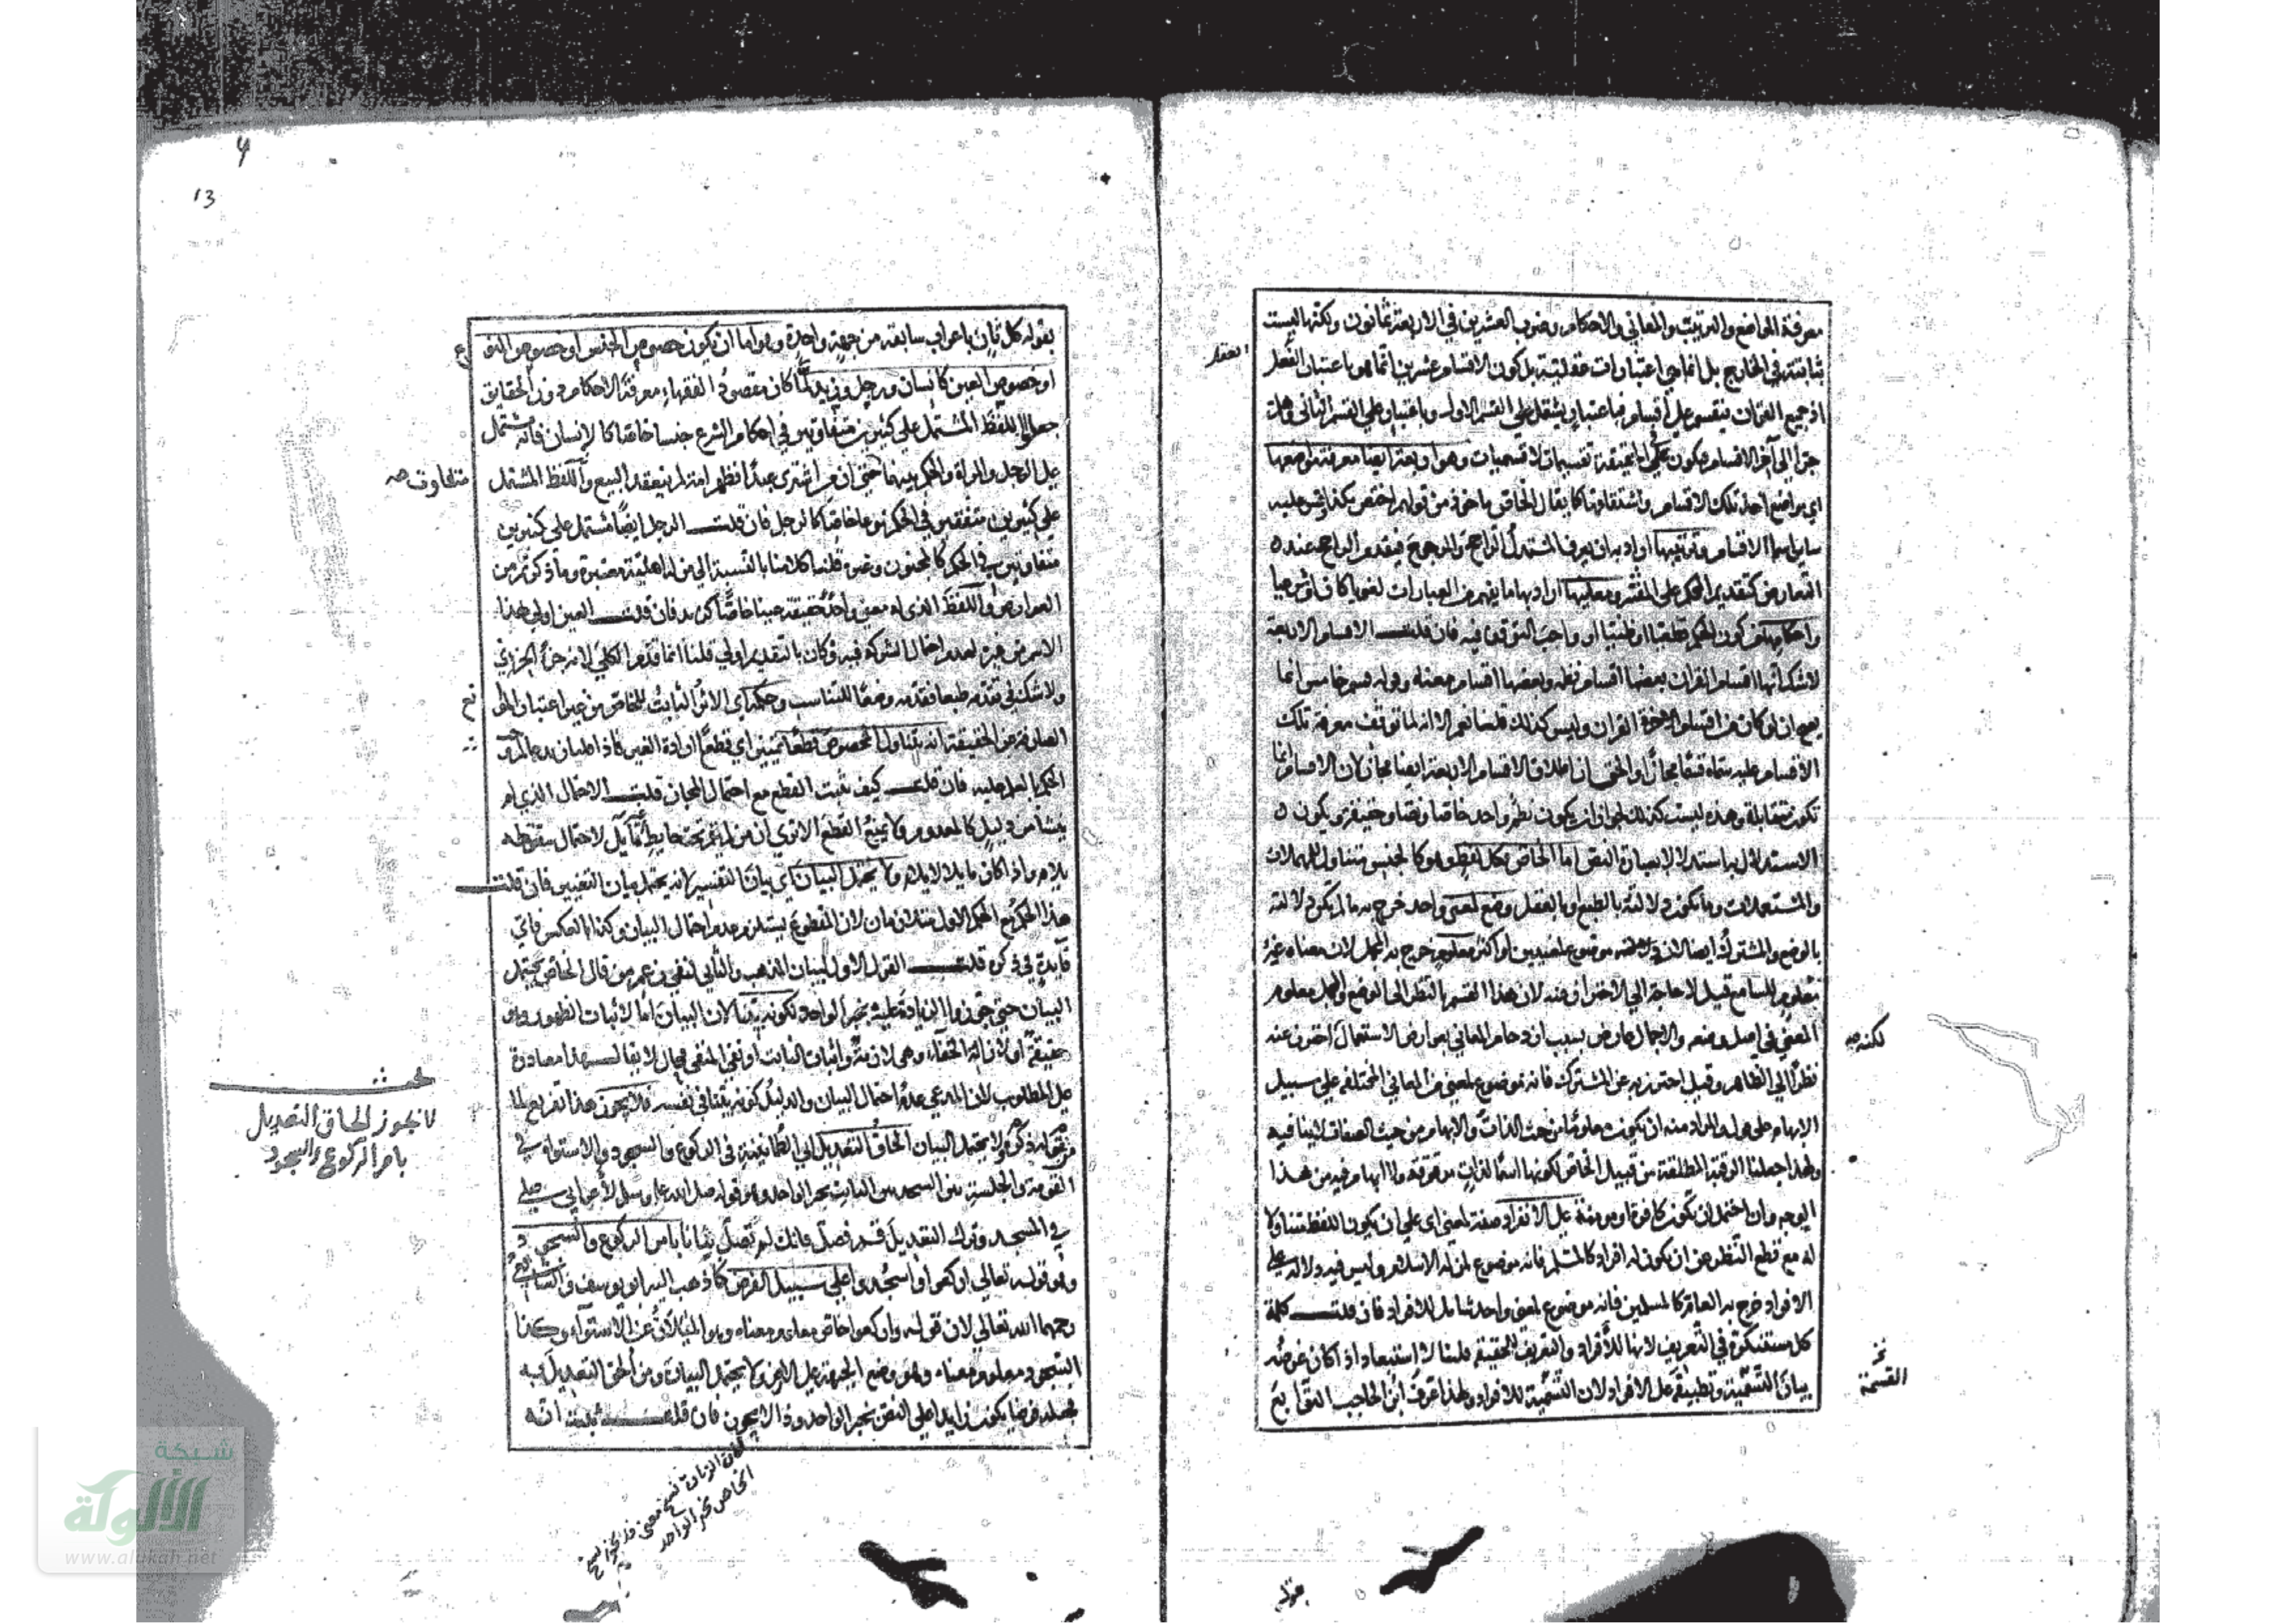 معرفة المواضع والترتيب والمعاني والاحكام وضرب العشرين في الاربعة ثمانون ولكنها ليست
ثابتة في الخارج بل انما هي اعتبارات عقلية بل كون الاقسام عشرين انما هو باعتبار
العقل
اذ جميع القران ينقسم على اقسام فباعتبار يشتمل على القسم الاول وباعتبار على القسم الثاني وهلم
جرا الى آخر الاقسام فيكون على الحقيقة تقسيمات لا قسميات وهو اربعة ايضا معرفة مواضعها
اي مواضع اخذ تلك الاقسام واشتقاقها كما يقال الخاص ماخوذ من قولهم اختص بكذا وقس عليه
ساير اسماء الاقسام وترتيبها اراد به ان يعرف المستدل الراجح والمرجوح فيقدم الراجح عنده
التعارض كتقديم المحكم على المفسر ومعانيها اراد بها ما يفهم من العبارات لغويا كان او شرعيا
واحكامها من كون الحكم قطعيا او ظنيا او واجب التوقف فيه فان قلت الاقسام الاربعة
لا شك انها اقسام القران بعضها اقسام نظمه وبعضها اقسام معناه وقوله قسم خامس انما
يصح ان لو كان من اقسام القران وليس كذلك قلنا نعم الا انه لما توقف معرفة تلك
الاقسام عليه سماه قسما مجازا والحق ان اطلاق الاقسام الاربعة ايضا مجاز لان الاقسام انما
تكون متقابلة وهذه ليست كذلك لجواز ان يكون نظم واحد خاصا ونصا وحقيقة ويكون
الاستدلال به استدلالا بعبارة النص اما الخاص فكل لفظ وهو كالجنس متناول للمهملات
والمستعملات وما تكون دلالته بالطبع او بالعقل وضع لمعنى واحد خرج به ما لم تكون دلالته
بالوضع والمشترك ايضا لانه موضوع لمعنيين او اكثر معلوم خرج به المجمل لان معناه غير
معلوم للسامع قيل لا حاجة الى الاحتراز عنه لان هذا القسم بالنظر الى الوضع والمجمل معلوم
المعنى في اصل وضعه والاجمال عارض بسبب ازدحام المعاني بعارض الاستعمال احترز عنه
لكنه صح
نظرا الى الظاهر وقيل احترز به عن المشترك فانه موضوع لمعنى من المعاني المختلفة على سبيل
الابهام على قول والمراد منه ان يكون معلوما من حيث الذات والابهام من حيث الصفات لا ينافيه
ولهذا جعلنا الرقبة المطلقة من قبيل الخاص لكونها اسما لذات مرقوقة ولا ابهام فيه من هذا
الوجه وان احتمل ان تكون كافرة او مومنة على الانفراد صفة لمعنى اي على ان يكون اللفظ متناولا
له مع قطع النظر عن ان يكون له افراد كالمسلم فانه موضوع لمن له الاسلام وليس فيه دلالة على
الافراد خرج به العام كالمسلمين فانه موضوع لمعنى واحد شامل للافراد فان قلت كلمة
كل مستنكرة في التعريف لانها للافراد والتعريف للحقيقة قلنا لا استبعاد اذا كان غرضه
بيان التسمية وتطبيقه على الافراد لان التسمية للافراد ولهذا عرف ابن الحاجب التوابع
القسمة
بقوله
بقوله كل ثان باعراب سابقه من جهة واحدة وهو اما ان يكون خصوص الجنس او خصوص النوع
او خصوص العين كانسان ورجل وزيد لما كان مقصود الفقهاء معرفة الاحكام دون الحقايق
جعلوا اللفظ المشتمل على كثيرين متفاوتين في احكام الشرع جنسا خاصا كالانسان فانه مشتمل
على الرجل والمراة والحكم بينهما متفاوت صح حتى ان من اشترى عبدا فظهر امة لم ينعقد البيع واللفظ المشتمل
على كثيرين متفقين في الحكم نوعا خاصا كالرجل فان قلت الرجل ايضا مشتمل على كثيرين
متفاوتين في الحكم كالمجنون وغيره قلنا كلامنا بالنسبة الى من له اهلية معتبرة وما ذكرتم من
العوارض واللفظ الذي له معنى واحد حقيقة عينا خاصا كزيد فان قلت العين اولى بهذا
الاسم من غيره لعدم احتمال الشركة فيه فكان بالتقديم اولى قلنا انما قدم الكلي لانه جزء الجزئي
ولا شك في تقدمه طبعا فقدمه وضعا للتناسب وحكمه اي الاثر الثابت للخاص من غير اعتبار الموانع
الصارفة عن الحقيقة انه يتناول المخصوص قطعا تمييز اي قطع ارادة الغير
الحكم بالعمل عليه فان قلت كيف يثبت القطع مع احتمال المجاز قلت الاحتمال الذي لم
ينشأ من دليل كالمعدوم فلا يمنع القطع الا ترى ان من لم يقم تحت حايط مايل لاحتمال سقوطه
يلام واذا كان مايلا لا يلام ولا يحتمل البيان اي بيان التفسير لانه يحتمل بيان التغيير فان قلت
هذا الحكم مع الحكم الاول متلازمان لان المقطوع يستلزم عدم احتمال البيان وكذا بالعكس فاي
فايدة في ذكره قلت القول الاول لبيان المذهب والثاني لنفي زعم من قال الخاص يحتمل
البيان حتى جوزوا الزيادة عليه بخبر الواحد لكونه بينا لان البيان اما لاثبات الظهور وهو
حقيقة او لازالة الخفاء وهي لازمة واثبات الثابت او نفي المنفي محال لا يقال هذا مصادرة
على المطلوب لان المدعي عدم احتمال البيان والدليل كونه بينا في نفسه فلا يجوز هذا تفريع لما
مر من قوله ولا يحتمل البيان الحاق التعديل اي الطمانينة في الركوع والسجود والاستواء في
القومة والجلسة بين السجدتين الثابت بخبر الواحد وهو قوله صلى الله عليه وسلم لاعرابي صلى
في المسجد وترك التعديل قم فصل فانك لم تصل بامر الركوع والسجود
وهو قوله تعالى اركعوا واسجدوا على سبيل الفرض كما ذهب اليه ابو يوسف والشافعي
رحمهما الله تعالى لان قوله واركعوا خاص معلوم معناه وهو الميلان عن الاستواء وكذا
السجود معلوم معناه وهو وضع الجبهة على الارض فلا يحتمل البيان ومن الحق التعديل به
فجعله فرضا يكون زايدا على النص بخبر الواحد وذا لا يجوز فان قلت ثبت انه
مبحث
لا يجوز الحاق التعديل
بامر الركوع والسجود
الخاص بخبر الواحد
13
شبكة
الألوكة
www.alukah.net